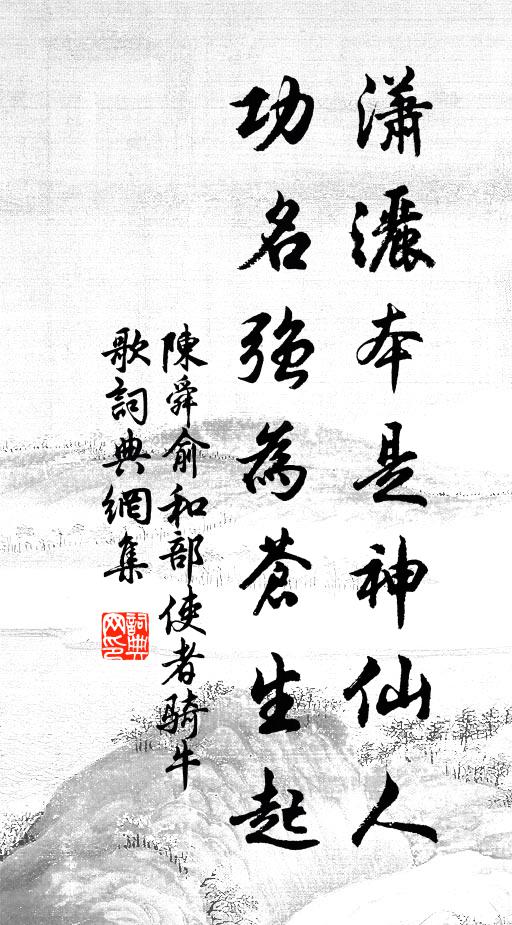 瀟灑本是神仙人
功名強為蒼生起
陳舜俞和部使者騎牛
歌詞典網集
詞典網印